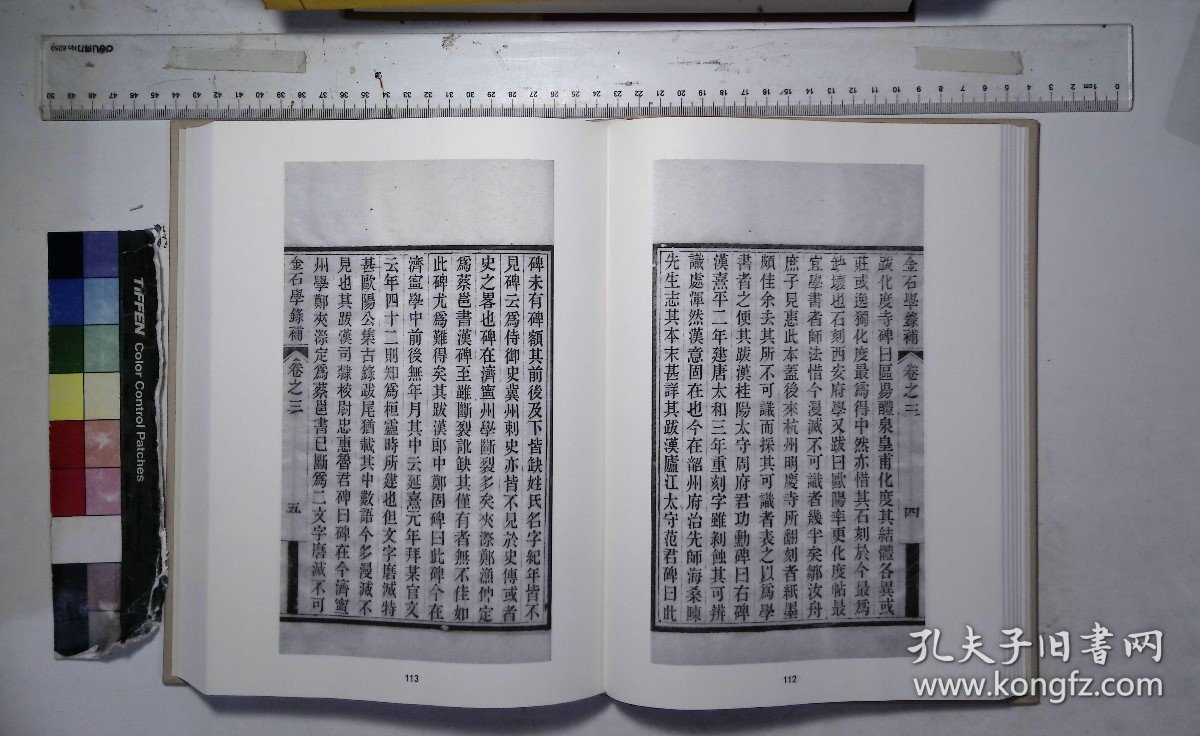 金石學錄補 卷之三 四
跋化度寺碑曰區昜醴泉皇甫化度其結體各異或
莊或逸獨化度最爲得中然亦惜其石刻於今最爲
壞也石刻西安府學又跋曰歐陽率更化度帖最
宜學書者師法惜今漫滅不可識者幾半矣鄒汝舟
庶子見惠此本蓋後來杭州明慶寺所翻刻者紙墨
頗佳余去其所不可識而採其可識者表之以爲學
書者之便其跋漢桂陽太守周府君功勳碑曰右碑
漢熹平二年建唐太和三年重刻字雖剝蝕其可辨
識處渾然漢意固在也今在韶州府治先師海桑陳
先生志其本末甚詳其跋漢廬江太守范君碑曰此
112
碑未有碑額其前後及下皆缺姓氏名字紀年皆不
見碑云爲侍御史冀州刺史亦皆不見於史傳或者
史之畧也碑在濟寧州學斷裂多矣夾漈鄭漁仲定
爲蔡邕書漢碑至雖斷裂訛缺其僅有者無不佳如
此碑尤爲難得矣其跋漢郎中鄭固碑曰此碑今在
濟寧學中前後無年月其中云延熹元年拜某官文
云年四十二則知爲桓靈時所建也但文字磨滅特
甚歐陽公集古錄跋尾猶載其中數語今多漫滅不
見也其跋漢司隸校尉忠惠魯君碑曰碑在今濟寧
州學鄭夾漈定爲蔡邕書已斷爲二文字磨滅不可
金石學錄補 卷之三 五
113
deli得力 No.6250
1cm 2 3 4 5 6 7 8 9 10 11 12 13 14 15 16 17 18 19 20 21 22 23 24 25 26 27 28 29 30 31 32 33 34 35 36 37 38 39 40 41 42 43 44 45 46 47 48 49 50
TIFFEN Color Control Patches
孔夫子旧书网
www.kongfz.com